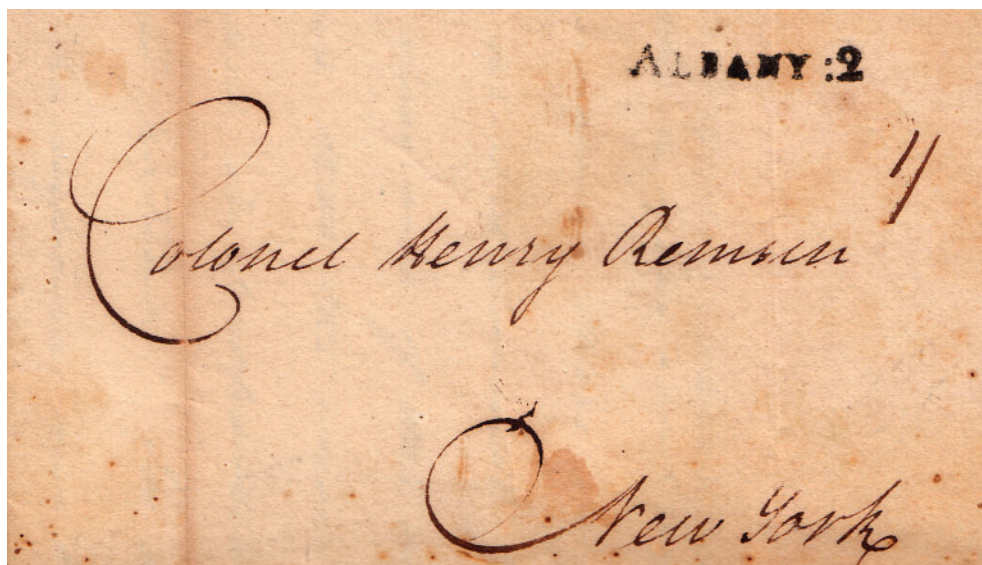 ALBANY:2
Colonel Henry Remsen
New York